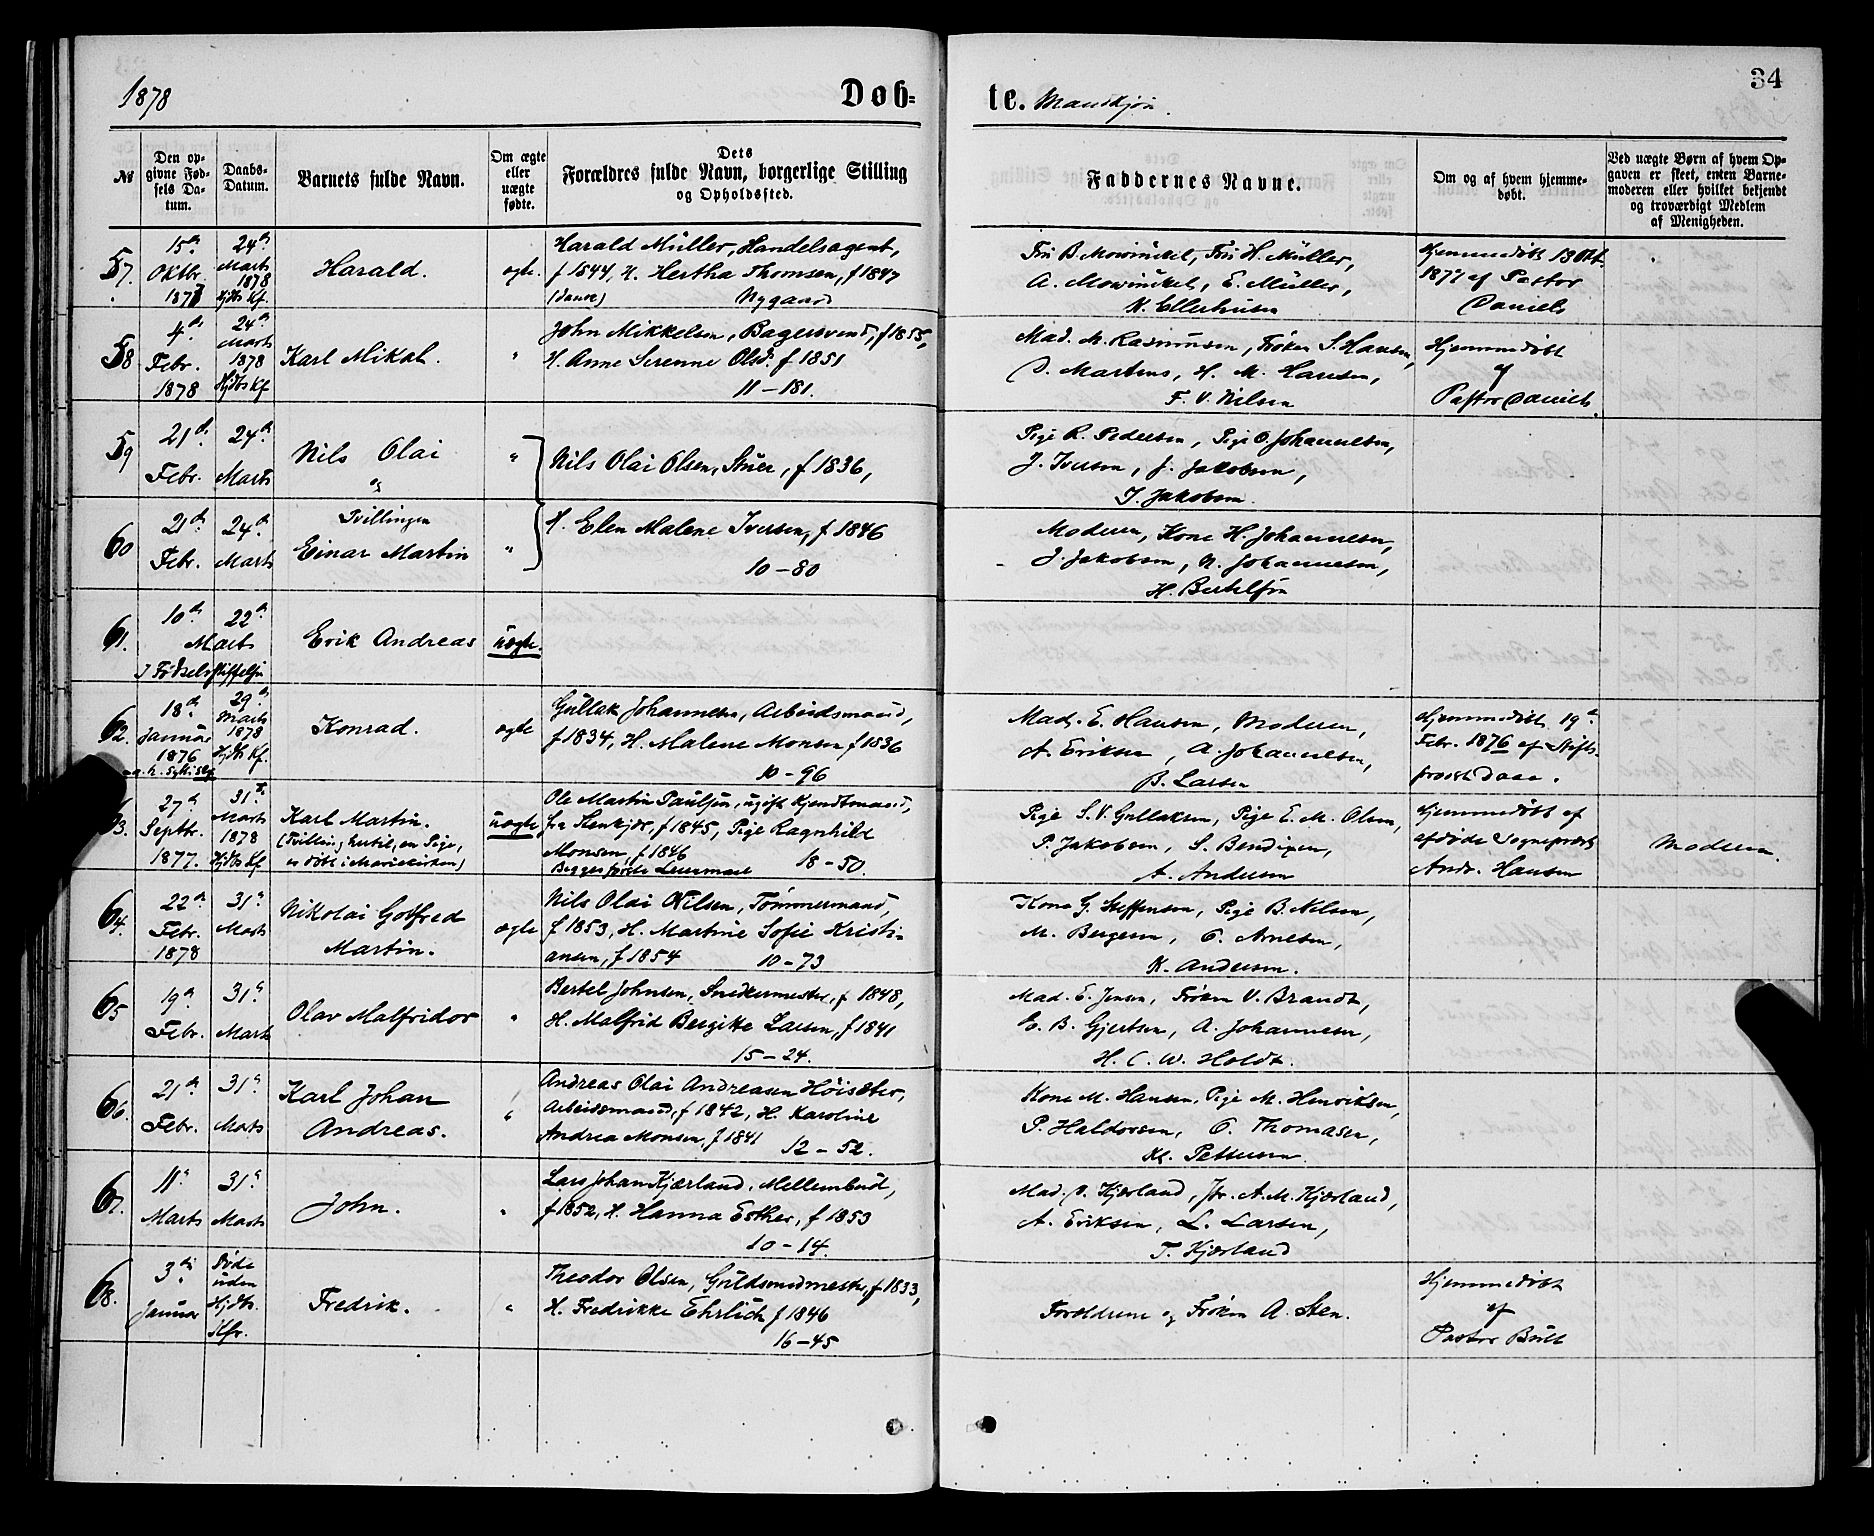 1878
Døb=
te. Mandkjøn.
34
№
Den op-
givne Fød-
sels Da-
tum.
Daabs-
Datum.
Barnets fulde Navn.
Om ægte
eller
uægte
fødte.
Dets
Forældres fulde Navn, borgerlige Stilling
og Opholdssted.
Faddernes Navne.
Om og af hvem hjemme-
døbt.
Ved uægte Børn af hvem Op-
gaven er skeet, enten Barne-
moderen eller hvilket bekjendt
og troværdigt Medlem
af Menigheden.
57.
15de
Oktbr.
1877
24de
Marts
1878
Hjdbs Kf.
Harald.
ægte.
Harald Müller, Handelsagent,
f 1844, H. Hertha Thomsen, f 1847
Nygaard
Fru B. Mowinckel, Fru H. Müller,
A. Mowinckel, E. Müller,
K. Ellerhusen
Hjemmedøbt 13 Okt.
1877 af Pastor
Daniels
58
4de
Febr.
1878
24de
Marts
1878
Hjdbs Kf
Karl Mikal.
"
John Mikkelsen, Bagersvend, f 1855,
H. Anne Serenne Olsd. f 1851
11-181.
Mad. M. Rasmussen, Frøken S. Hansen,
D. Martens, H. M. Hansen,
F. V. Nilsen
Hjemmedøbt
af
Pastor Daniels.
59
21de
Febr.
24de
Marts
Nils Olai
og
"
Nils Olai Olsen, Stuer, f 1836,
Pige R. Pedersen, Pige O. Johannesen,
J. Iversen, J. Jakobsen,
I. Jakobsen.
60
21de
Febr.
24de
Marts
Tvillingen
Einar Martin
"
H. Elen Malene Iversen, f 1846
10-80
Moderen, Kone H. Johannesen,
J. Jakobsen, N. Johannesen,
H. Bertelsen
61.
10de
22de
Marts
I Fødselsstiftelsen
Erik Andreas
uægte.
62.
18de
Januar
1876
29de
Marts
1878
Hjdbs Kf.
Konrad.
ægte
Gullak Johannesen, Arbeidsmand,
f 1834, H. Malene Monsen f 1836
10-96
Mad. E. Hansen, Moderen,
A. Eriksen, A. Johannesen,
B. Larsen
Hjemmedøbt 19de
Febr. 1876 af Stifts-
provst Daae.
63.
27de
Septbr.
1877.
31te
Marts
1878
Hjdbs Kf
Karl Martin.
(Tvilling hertil, en Pige,
er døbt i Mariekirken)
uægte
Ole Martin Paulsen, ugift Kjendtmand,
fra Stenkjer, f 1845, Pige Ragnhild
Monsen, f 1846
Begges første Leiermaal
18-50.
Pige S. V. Gullaksen, Pige E. M. Olsen,
P. Jakobsen, S. Bendixen,
A. Andersen
Hjemmedøbt af
afdøde Sogneprest
Andr. Hansen
Moderen.
64.
22de
Febr.
1878
31te
Marts
Nikolai Gotfred
Martin.
ægte
Nils Olai Nilsen, Tømmermand,
f 1853, H. Martine Sofie Kristi-
ansen, f 1854
10-73
Kone G. Steffensen, Pige B. Nilsen,
M. Bergesen, O. Arnesen,
K. Andersen.
65
19de
Febr.
31te
Marts
Olav Malfridor
"
Bertel Johnsen, Snedkermester, f 1848,
H. Malfrid Bergitte Larsen, f 1841
15-24.
Mad. E. Jensen, Frøken V. Brandt,
E. B. Gjertsen, A. Johannesen,
H. C. W. Holdt.
66.
21de
Febr.
31te
Marts
Karl Johan
Andreas.
"
Andreas Olai Andreasen Høisæter,
Arbeidsmand, f 1842, H. Karoline
Andrea Monsen, f 1841
12-52.
Kone M. Hansen, Pige M. Henriksen,
P. Haldorsen, O. Thomasen,
Kl. Pettersen
67.
11te
Marts
31te
Marts
John.
"
Lars Johan Kjærland, Mellembud,
f 1852, H. Hanna Esther, f 1853
10-14.
Mad. D. Kjærland, Jfr. A. M. Kjærland,
A. Eriksen, L. Larsen,
T. Kjærland
68.
3die
Januar
Døde
uden
Hjdbs.
Kfr.
Fredrik.
"
Theodor Olsen, Guldsmedmester, f 1833,
H. Fredrikke Ehrlich f 1846
16-45
Forældrene og Frøken A. Sten.
Hjemmedøbt
af
Pastor Bull